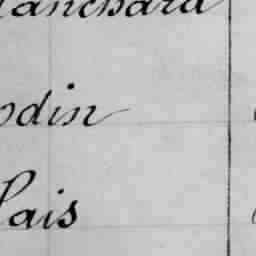 lanchard
odin
lais